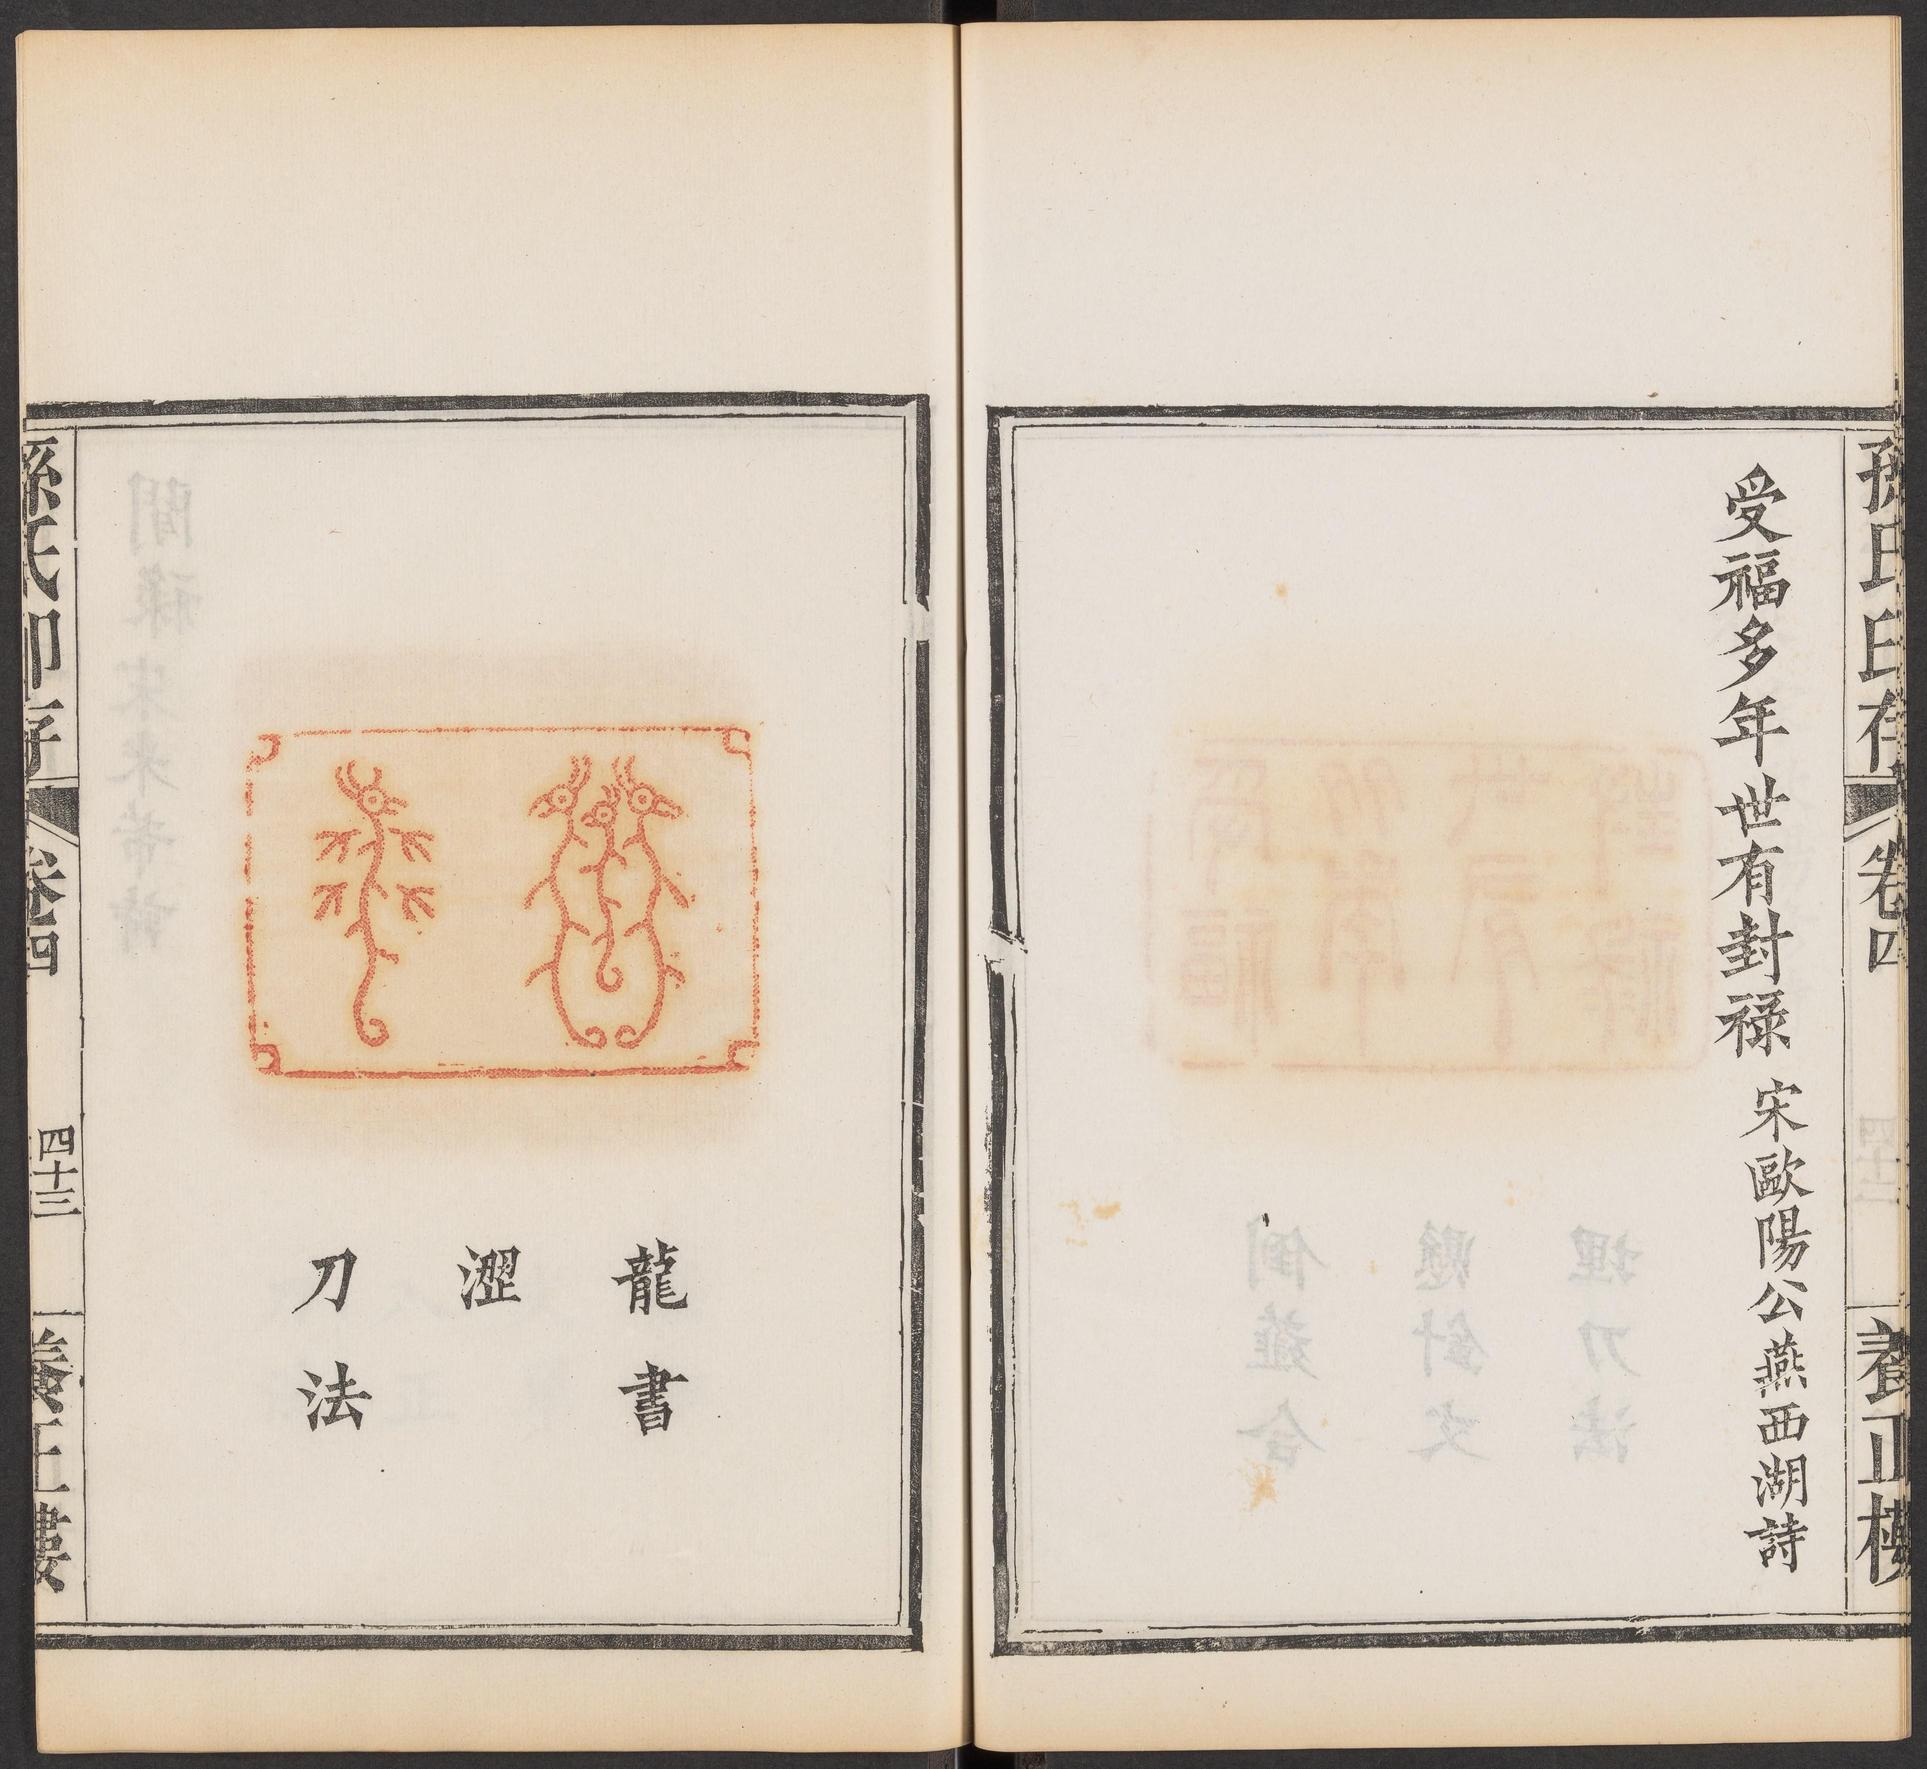 孫氏印存
卷四
養正樓
受福多年世有封祿 宋歐陽公燕西湖詩
龍書
澀
刀法
孫氏印存
卷四
四十三
養正樓